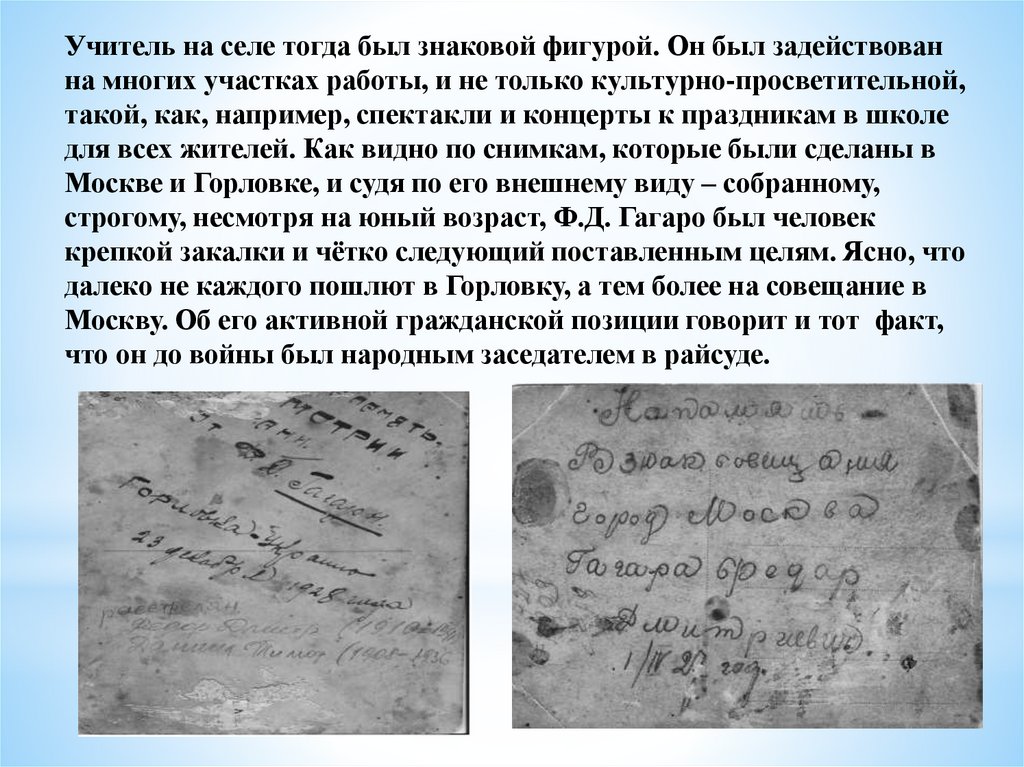 Учитель на селе тогда был знаковой фигурой. Он был задействован
на многих участках работы, и не только культурно-просветительной,
такой, как, например, спектакли и концерты к праздникам в школе
для всех жителей. Как видно по снимкам, которые были сделаны в
Москве и Горловке, и судя по его внешнему виду – собранному,
строгому, несмотря на юный возраст, Ф.Д. Гагаро был человек
крепкой закалки и чётко следующий поставленным целям. Ясно, что
далеко не каждого пошлют в Горловку, а тем более на совещание в
Москву. Об его активной гражданской позиции говорит и тот факт,
что он до войны был народным заседателем в райсуде.
память.
От
Горловка - Украины
23 декабря 1928 года
расстрелян
город Москва
Гагара
Дмитриевич.
год.